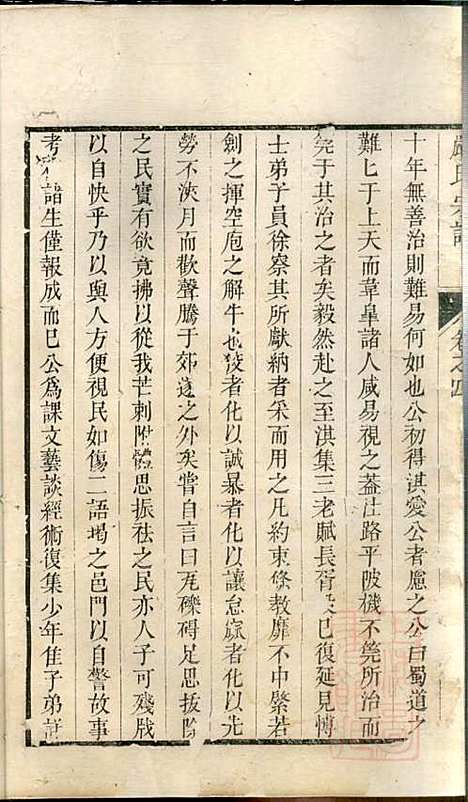 十年無善治則難易何如也公初得淇愛公者慮之公曰蜀道之
難匕于上天而草皇諸人咸易視之葢仕路平陂機不筦所治而
筦于其治之者矣毅然赴之至淇集三老賦長胥 已復延見愽
士弟子員徐察其所獻納者采而用之凡約束條教靡不中綮若
劍之揮空庖之解牛也狡者化以誠暴者化以讓怠窳者化以先
勞不浹月而歡聲騰于郊遂之外矣嘗自言曰死礫碍足思拔除
之民實有欲竟拂以從我芒刺附體思振祛之民亦人子可殘戕
以自快乎乃以與人方便視民如傷二語揭之邑門以自警故事
考 諸生僅報成而巳公爲課文藝談經術復集少年隹子弟
氏宗譜
卷之四